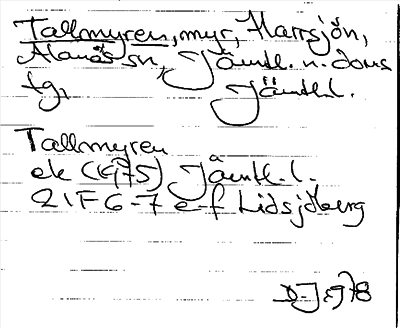 Tallmyren, myr, Harrsjön,
Alanäs sn, Jämtl. n. doms
fg, Jämtl.
Tallmyren
ek (1975) Jämtl. l.
21F 6-7 e-f Lidsjöberg
1978